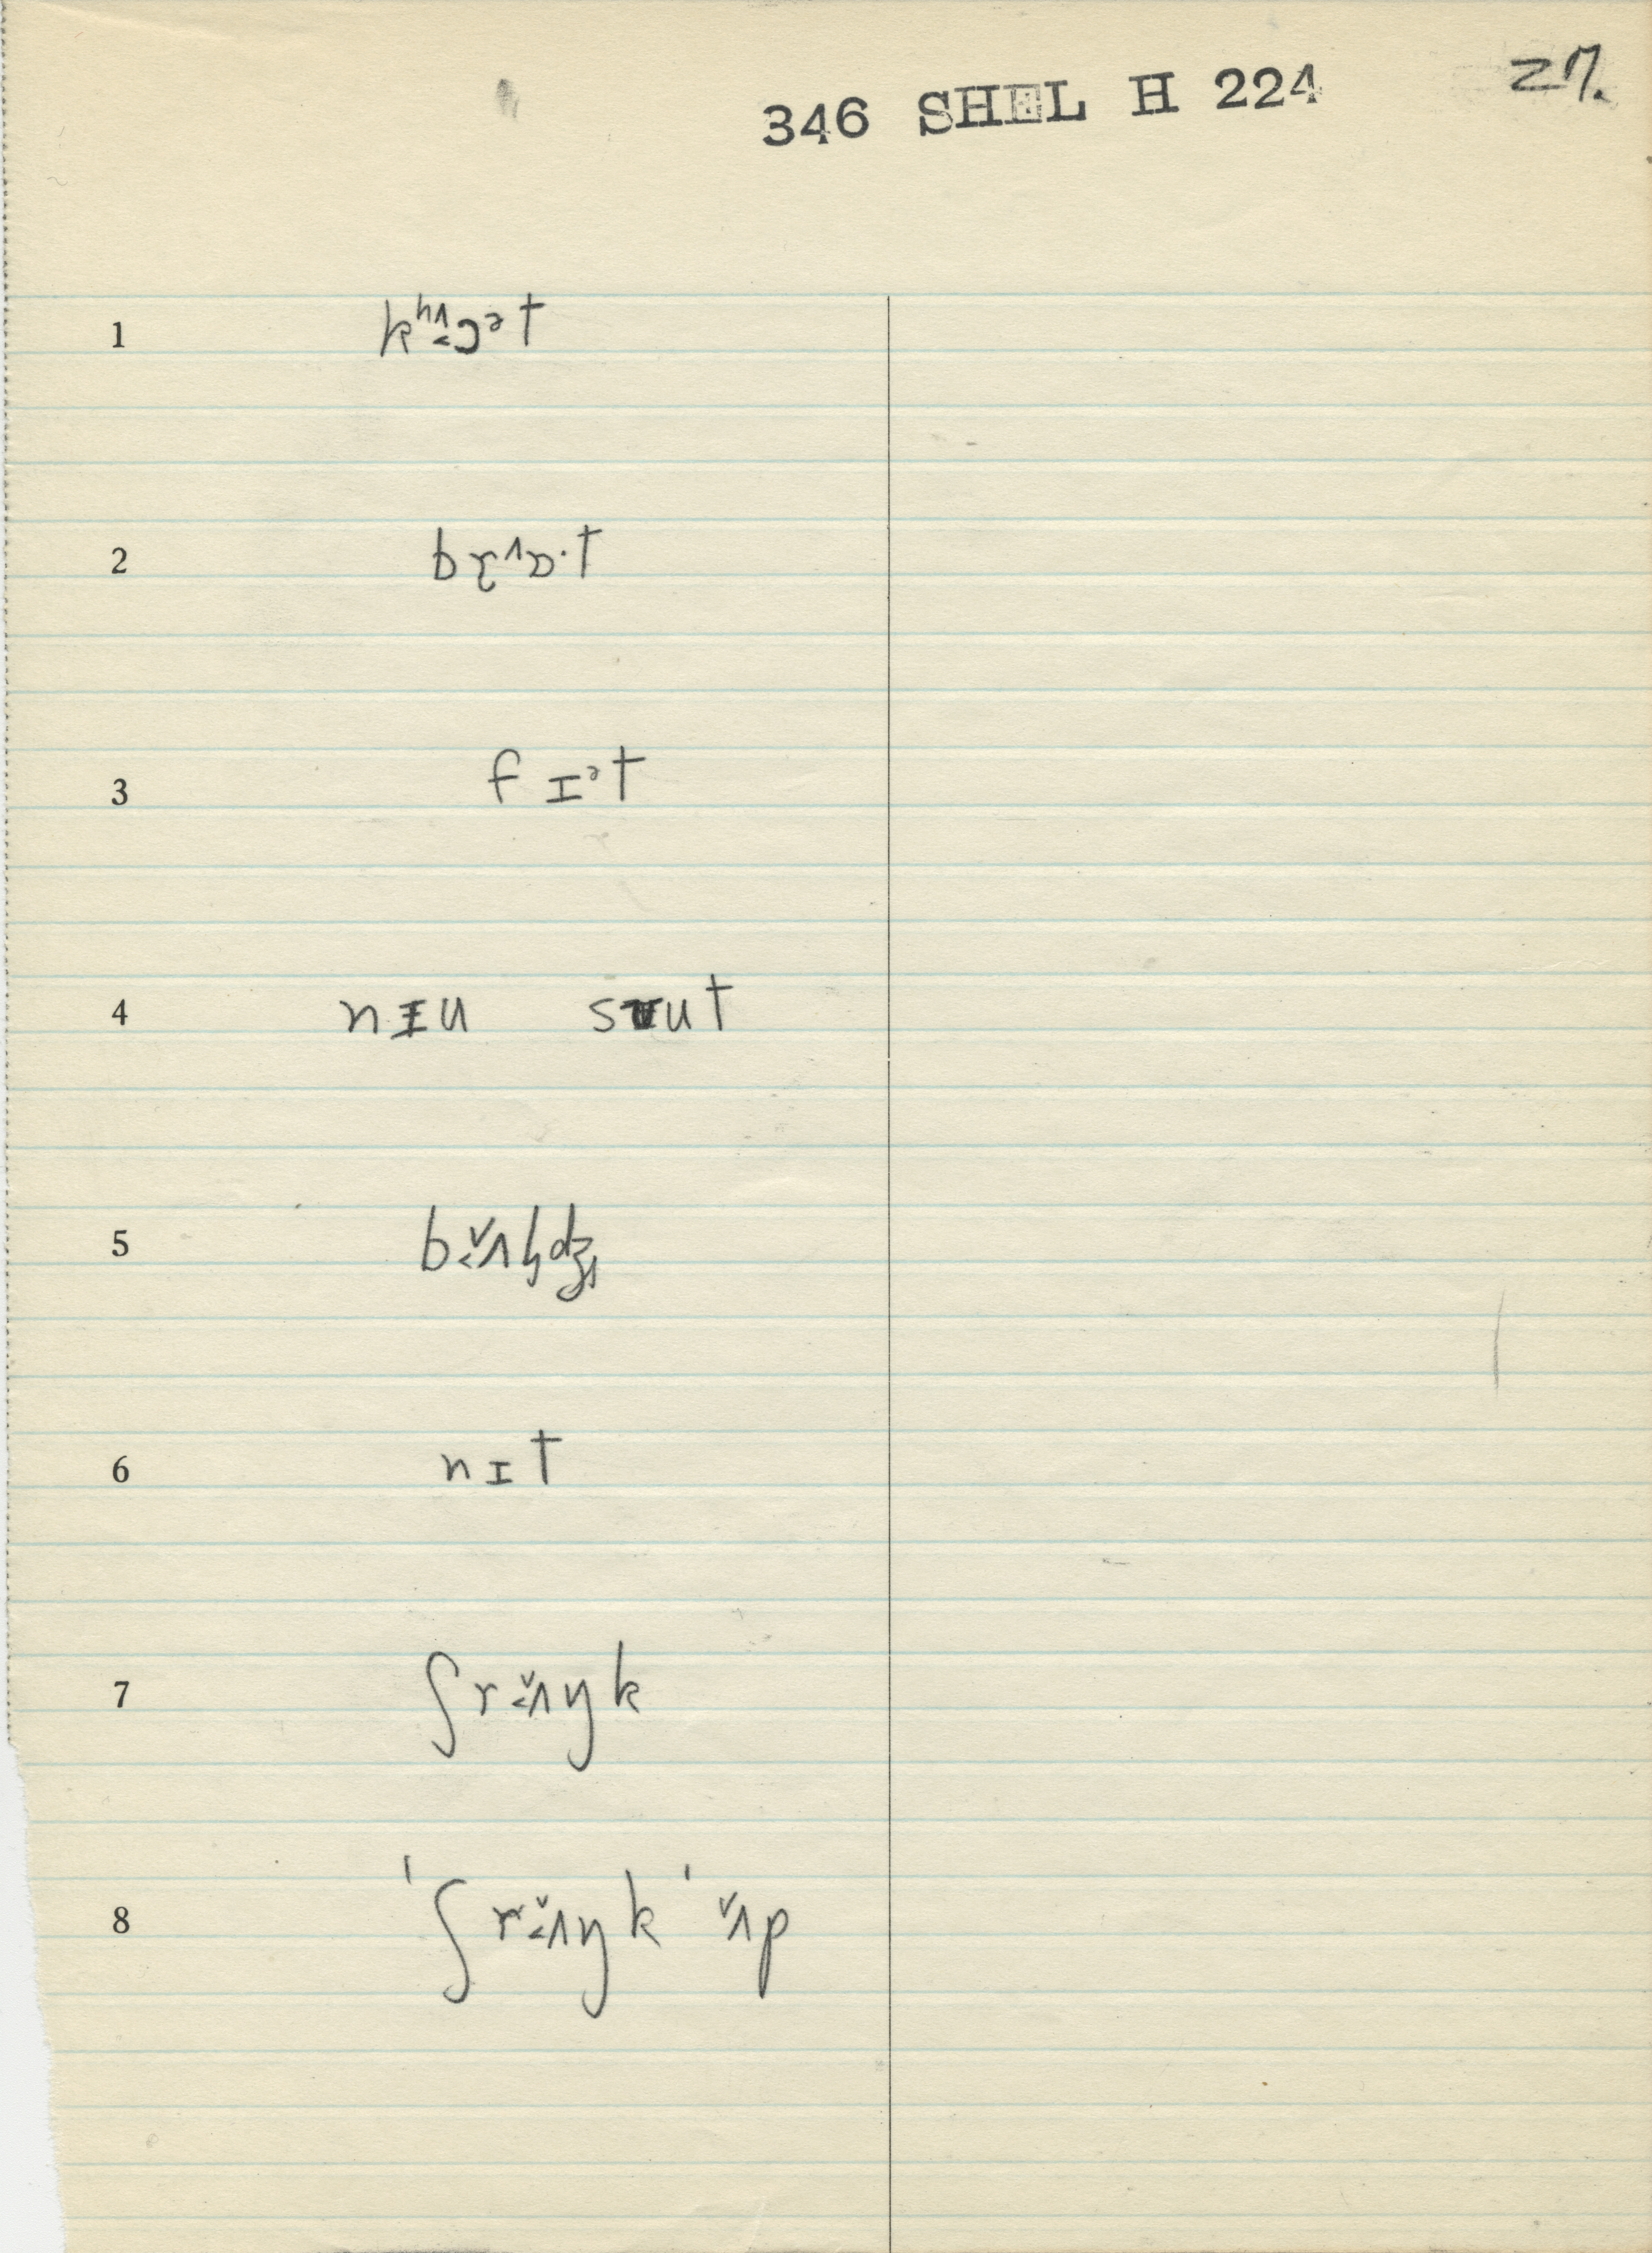 346 SHEL H 224
27.
1 kʰʌ̞˂ɔᵊt
2 bɽ^ɒ·t
3 fɪᵊt
4 nɪu sʉut
5 bʌ̌˂ɫdʒ
6 nɪt
7 ʃrʌ̌˂ŋk
8 ˈʃrʌ̌˂ŋkˈʌ̌p